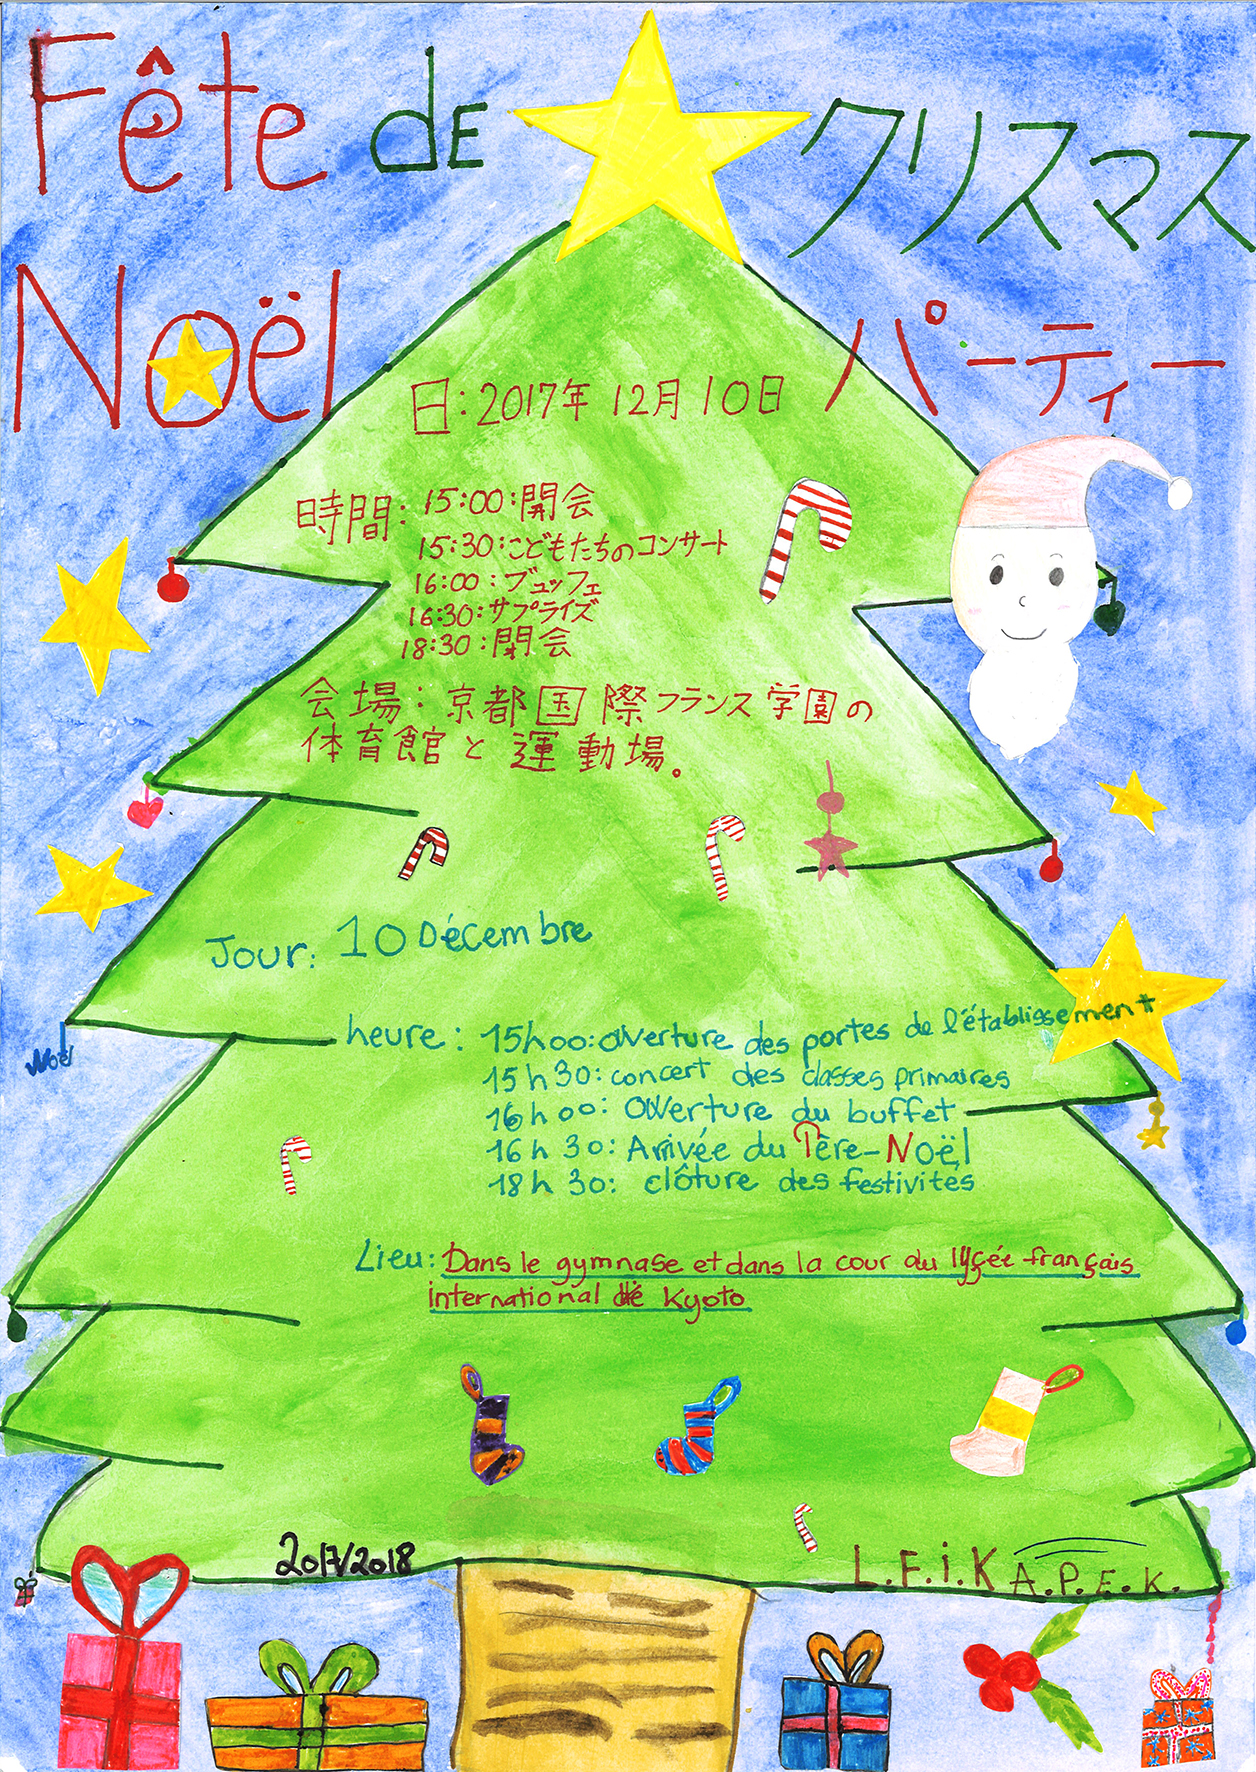 Fête de
クリスマス
Noël
パーティー
日:2017年 12月10日
時間:15:00:開会
15:30:こどもたちのコンサート
16:00:ブュッフェ
16:30:サプライズ
18:30:閉会
会場:京都国際フランス学園の
体育館と運動場。
Jour: 10 Décembre
heure: 15h00:ouverture des portes de l'établissement
15h30:concert des classes primaires
16h00: Ouverture du buffet
16h30: Arrivée du Père-Noël
18h30: clôture des festivités
Noël
Lieu: Dans le gymnase et dans la cour du lycée français
international de Kyoto
2017/2018
L.F.i.K A.P.E.K.